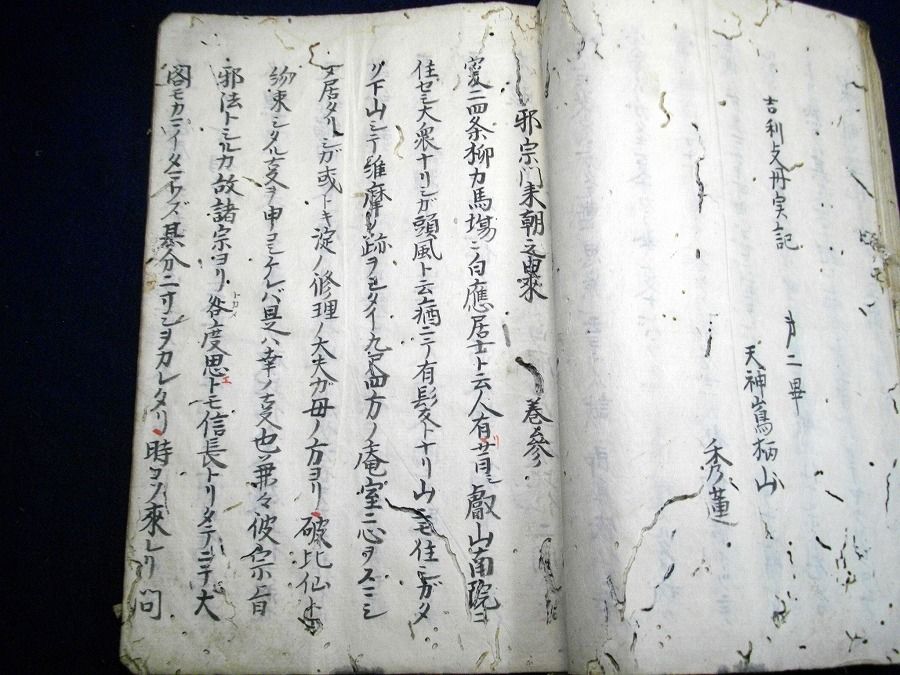 吉利支丹実記
才二畢
天神嶌柄山
秀蓮
邪宗門来朝之由来 巻参
爰ニ四条柳カ馬場ニ白應居士ト云人有リ昔シ叡山南院ニ
住セシ大衆ナリシガ頭風ト云病ニテ有髪トナリ山ニモ住シガタ
ク下山シテ維摩ノ跡ヲシタイ九尺四方ノ庵室ニ心ヲスマシ
テ居タリシガ或トキ淀ノ修理ノ大夫ガ母ノ方ヨリ破比仙ト
約束シタル支ヲ申コシケレバ是ハ幸ノ支也兼々彼宗旨
邪法トシルカ故諸宗ヨリ咎度思ヘトモ信長トリタテニテ大
閤モカマイタマハズ其分ニ寸シヲカレタリ時コソ来レリ問